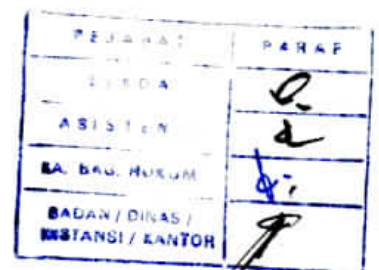 PEJABAT PARAF
SEKDA
ASISTEN
KA. BAG. HUKUM
BADAN / DINAS /
INSTANSI / KANTOR